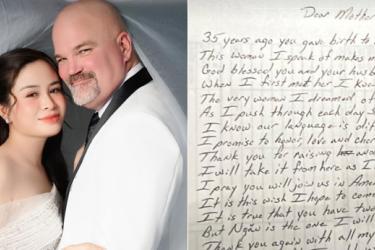 Dear Mother
35 years ago you gave birth to
This woman I speak of makes m
God blessed you and your husb
When I first met her I kno
The very woman I dreamed of
As I push through each day I
I know our language is dif
I promise to honor, love and cher
Thank you for raising her and
I will take it from here as I
I pray you will join us in Amer
It is this wish I hope to com
It is true that you have two
But Ngân is the one I will
Thank you again with all my